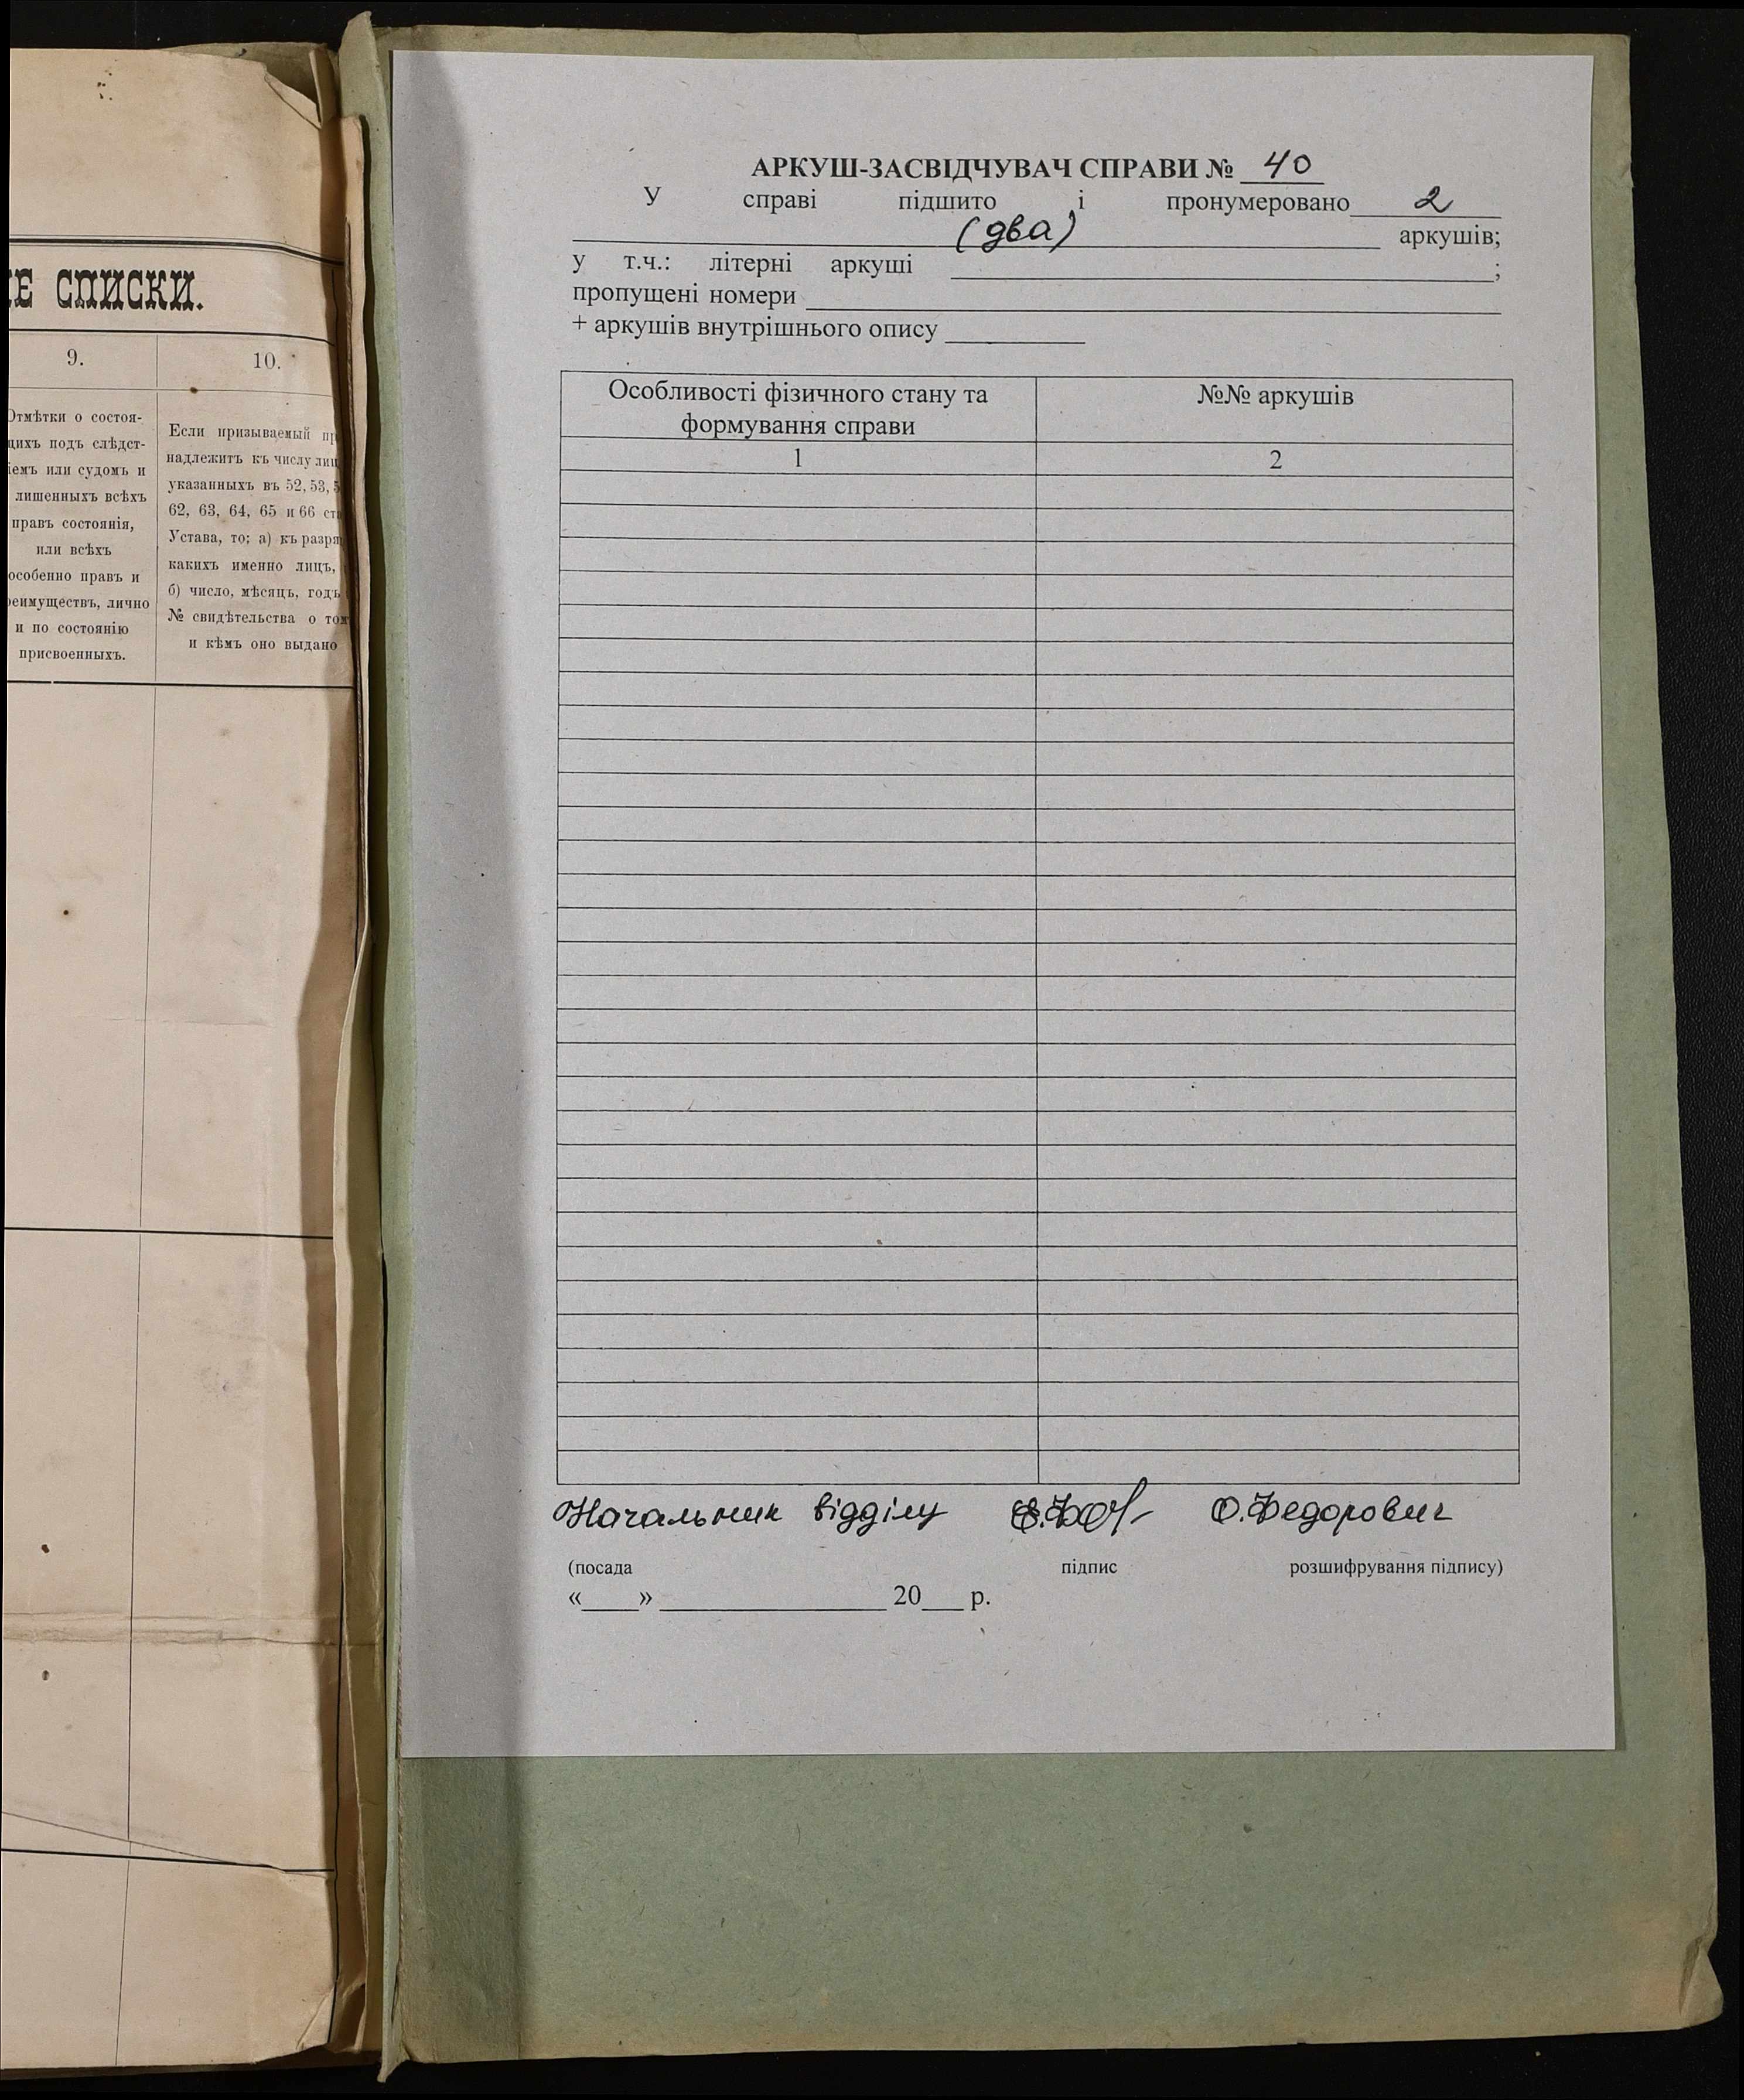 СПИСКИ.
9.
10.
Отмѣтки о состоя-
щихъ подъ слѣдст-
іемъ или судомъ и
лишенныхъ всѣхъ
правъ состоянія,
или всѣхъ
особенно правъ и
реимуществъ, лично
и по состоянію
присвоенныхъ.
Если призываемый пр
надлежитъ къ числу лиц
указанныхъ въ 52, 53, 5
62, 63, 64, 65 и 66 ста
Устава, то; а) къ разря
какихъ именно лицъ,
б) число, мѣсяцъ, годъ
№ свидѣтельства о том
и кѣмъ оно выдано
АРКУШ-ЗАСВІДЧУВАЧ СПРАВИ № 40
У справі підшито і пронумеровано 2
(два) аркушів;
у т.ч.: літерні аркуші ;
пропущені номери
+ аркушів внутрішнього опису
Особливості фізичного стану та
формування справи
№№ аркушів
1
2
Начальник відділу О.Федорович
(посада підпис розшифрування підпису)
«____» ________________ 20___ р.